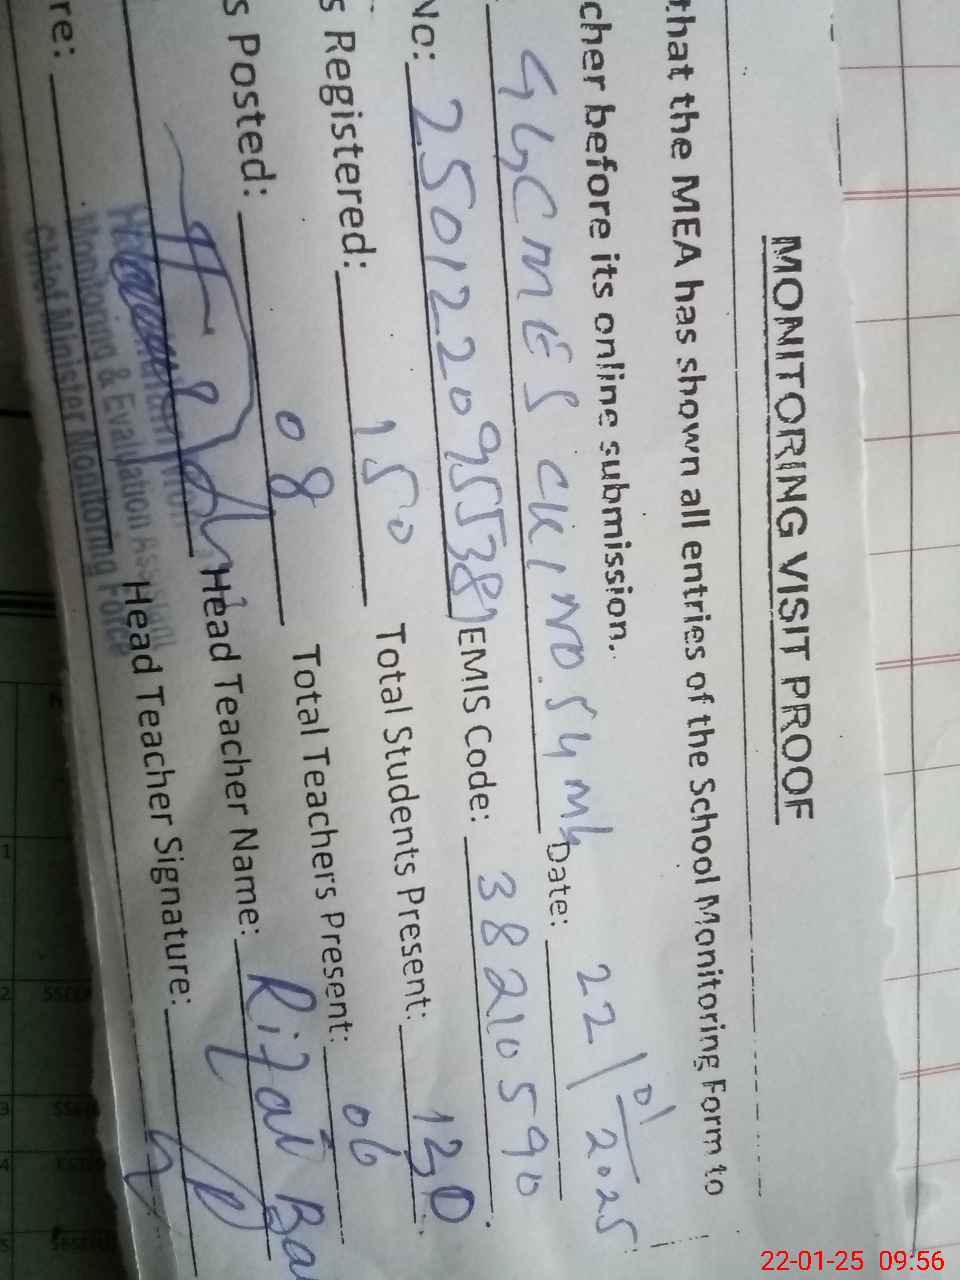 MONITORING VISIT PROOF
that the MEA has shown all entries of the School Monitoring Form to
cher before its online submission.
GGCMES CK, NO. 54 Date: 22/01/2025
No: 25012209553819 EMIS Code: 38210590
s Registered: 150 Total Students Present: 130
s Posted: 08 Total Teachers Present: 06
Head Teacher Name: Rifat Ba
re: Head Teacher Signature:
Monitoring & Evaluation
Chief Minister Monitoring Force
22-01-25 09:56